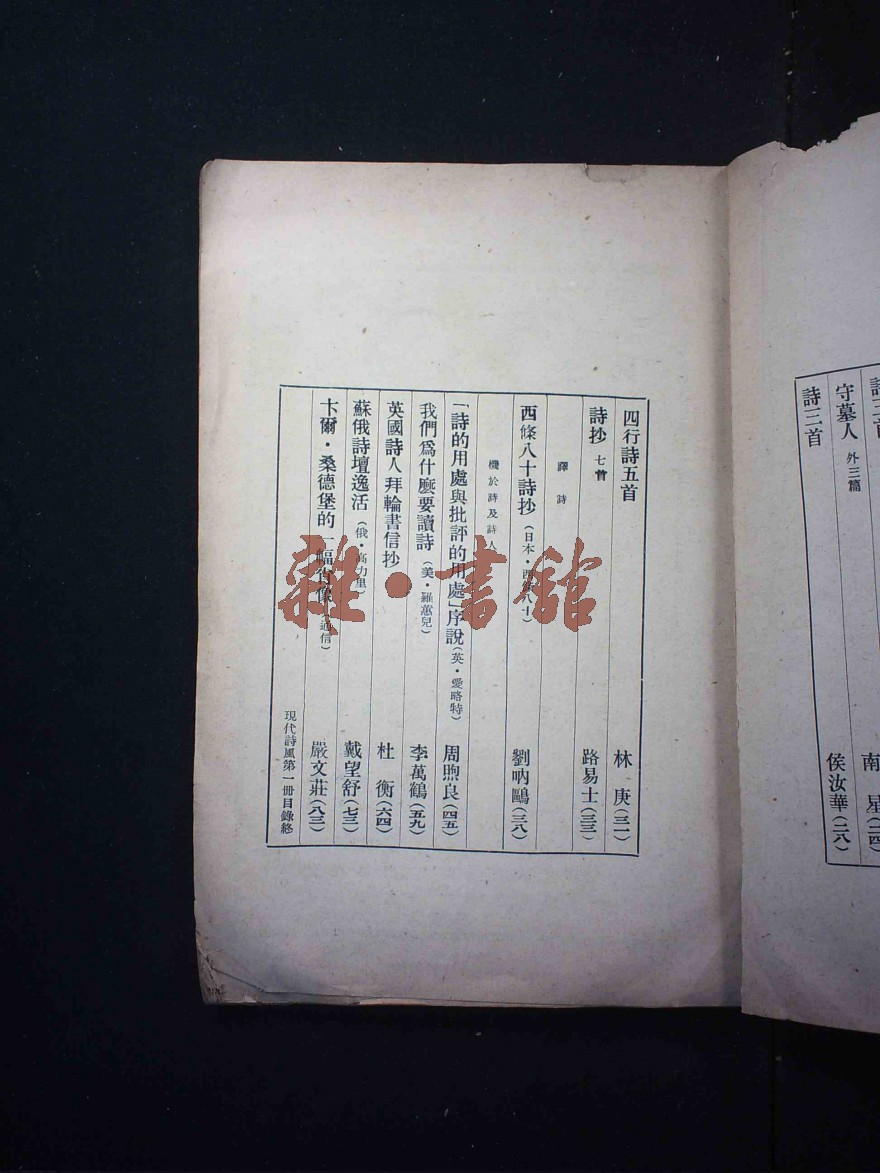 詩二首
南　星（二四）
守墓人　外三篇
侯汝華（二八）
詩三首
四行詩五首
林　庚（三一）
詩抄　七首
路易士（三三）
譯詩
西條八十詩抄（日本・西條八十）
劉吶鷗（三八）
機於詩及詩人
「詩的用處與批評的用處」序說（英・愛略特）
周煦良（四五）
我們爲什麽要讀詩（美・羅蕙兒）
李萬鶴（五九）
英國詩人拜輪書信抄
杜　衡（六四）
蘇俄詩壇逸活（俄・高力里）
戴望舒（七三）
卞爾・桑德堡的一幅　像（通信）
嚴文莊（八三）
現代詩風第一冊目錄終
雜・書館